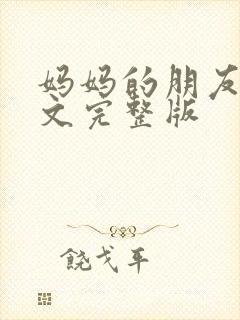 妈妈的朋友
文完整版
饶戈平